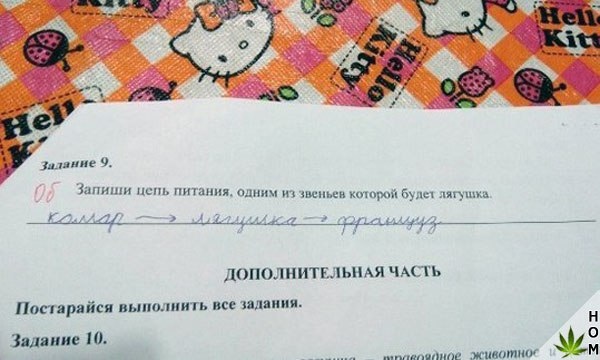 Hello Kitty
Hello Kitty
Hello
Задание 9.
Об Запиши цепь питания, одним из звеньев которой будет лягушка.
комар → лягушка → француз
ДОПОЛНИТЕЛЬНАЯ ЧАСТЬ
Постарайся выполнить все задания.
Задание 10.
травоядное животное и
HOM